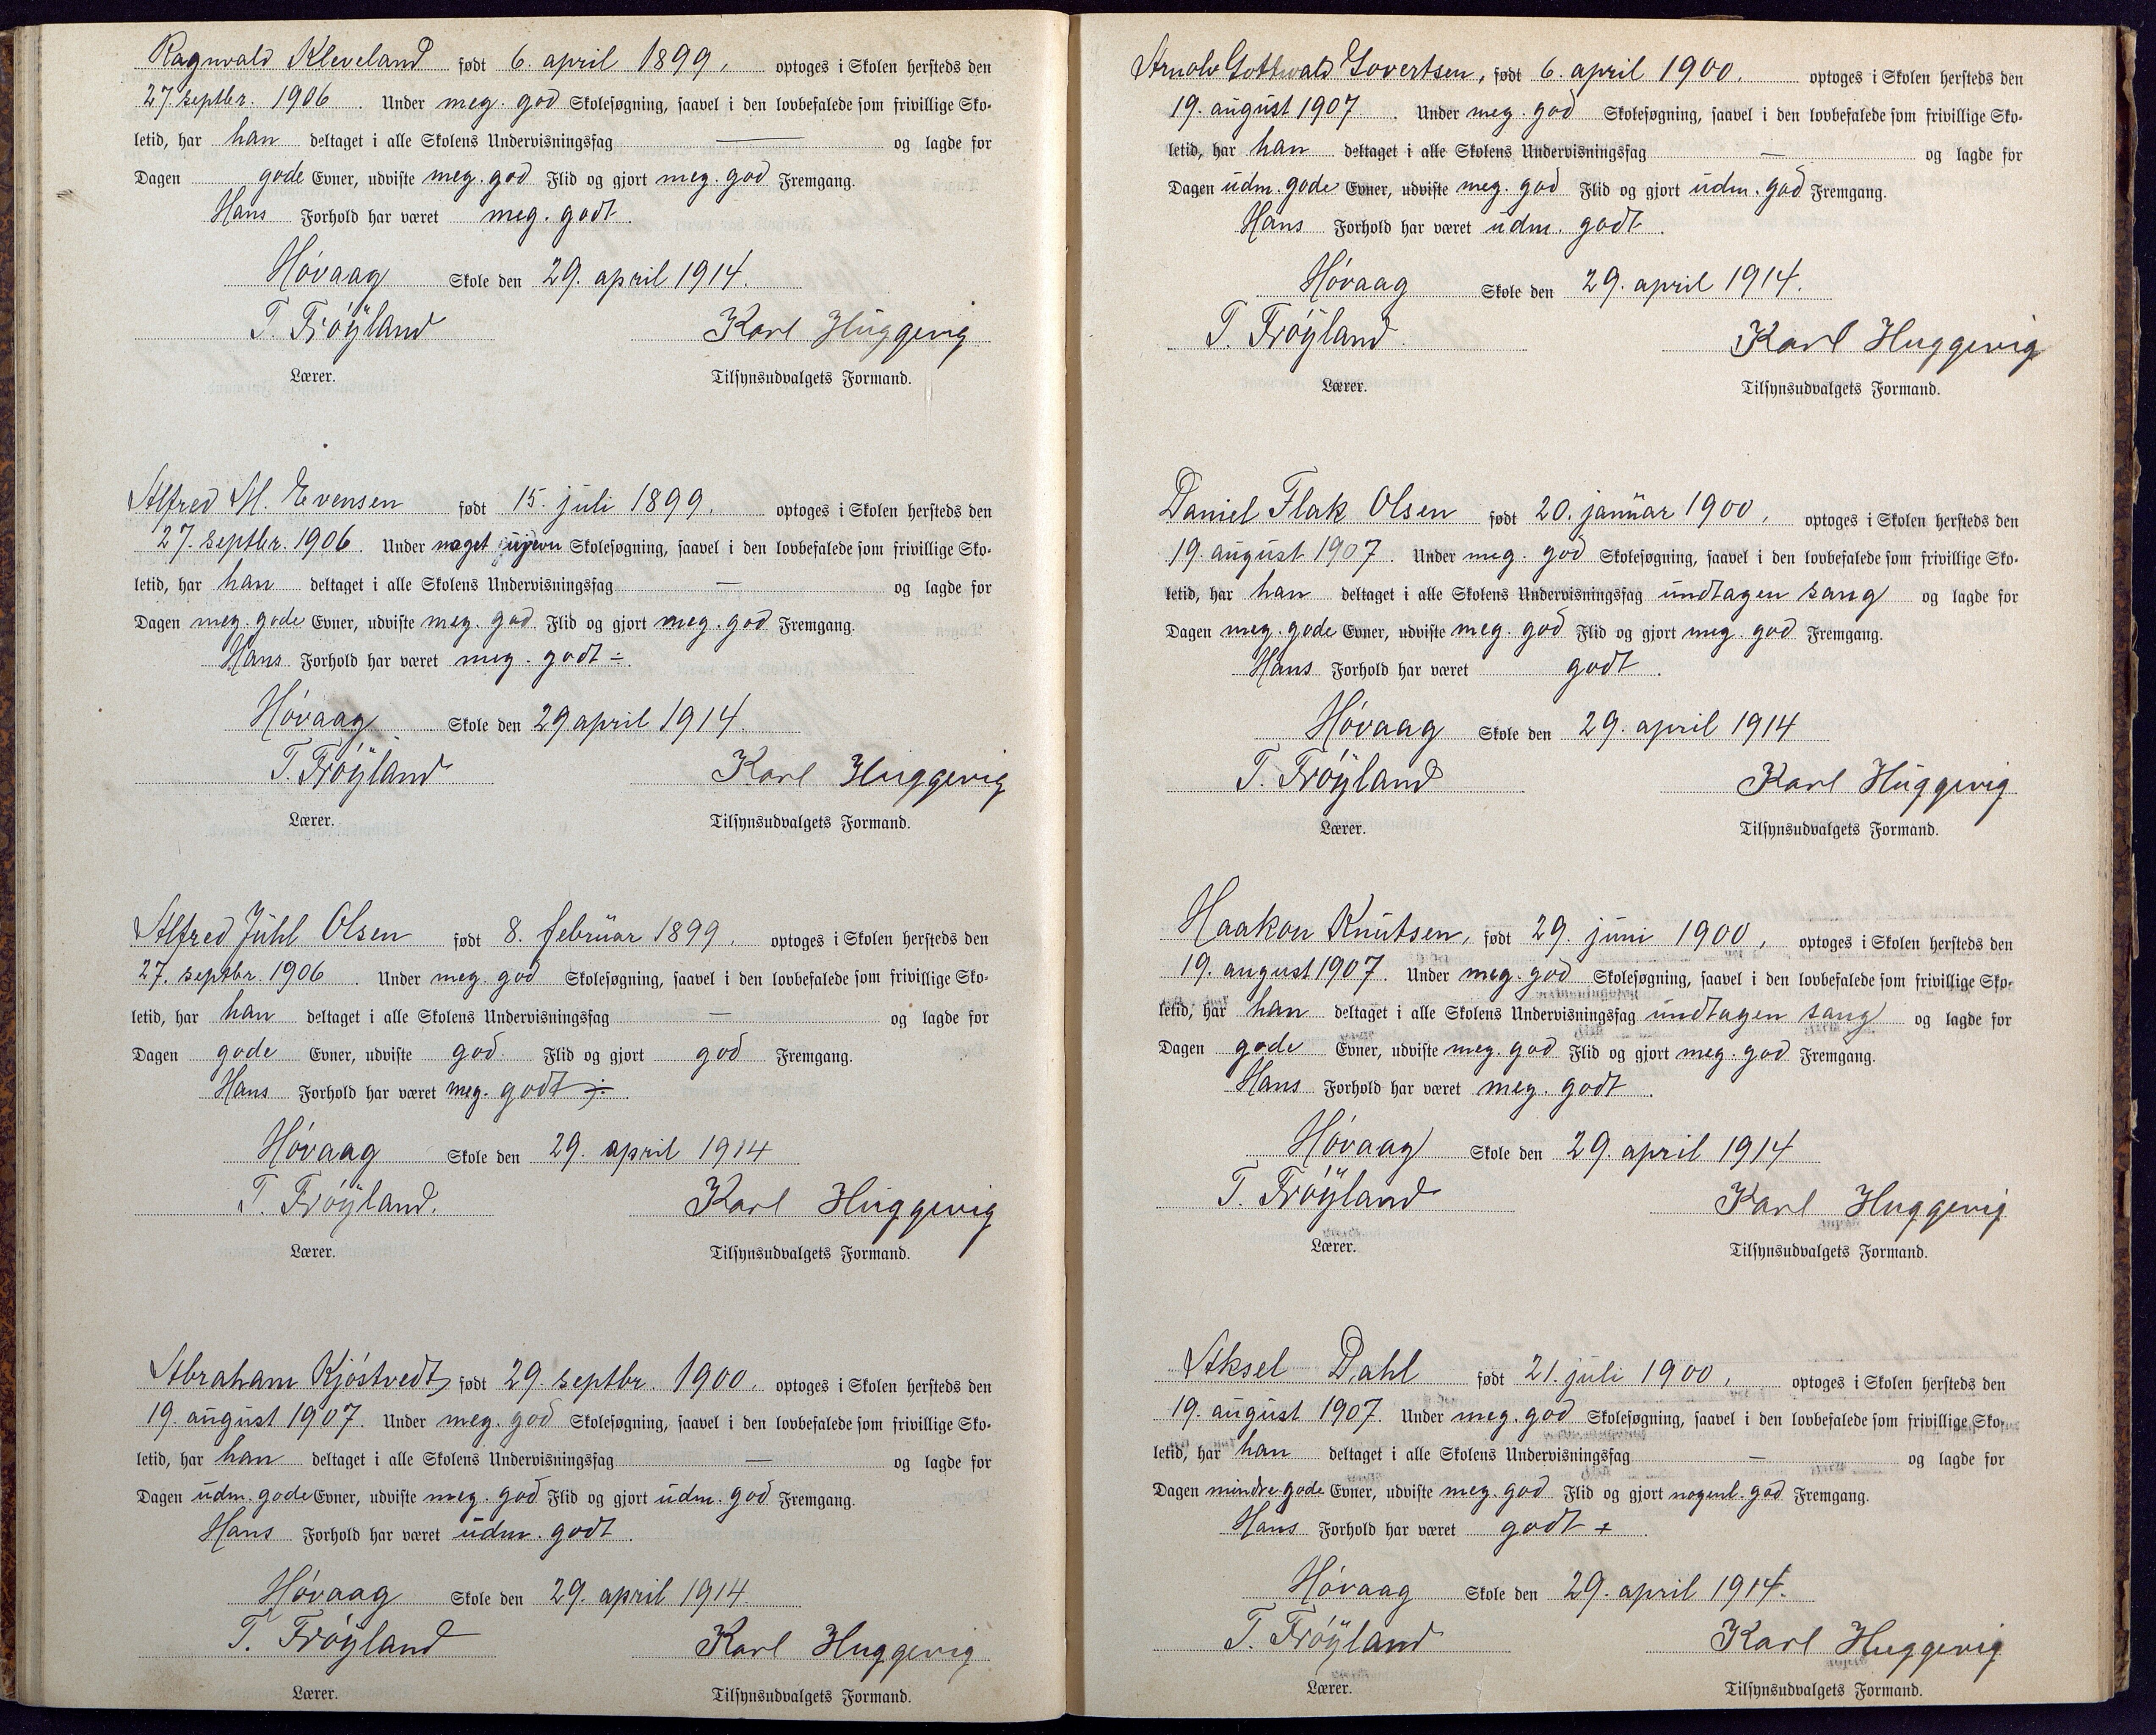 Ragnvald Kleveland født 6. april 1899, optoges i Skolen hersteds den
27. septbr. 1906. Under meg. god Skolesøgning, saavel i den lovbefalede som frivillige Sko-
letid, har han deltaget i alle Skolens Undervisningsfag — og lagde for
Dagen gode Evner, udviste meg. god Flid og gjort meg. god Fremgang.
Hans Forhold har været meg. godt.
Høvaag Skole den 29. april 1914.
T. Frøyland Karl Huggevig
Lærer. Tilsynsudvalgets Formand.
Alfred M. Evensen født 15. juli 1899, optoges i Skolen hersteds den
27. septbr. 1906. Under noget ujevn Skolesøgning, saavel i den lovbefalede som frivillige Sko-
letid, har han deltaget i alle Skolens Undervisningsfag — og lagde for
Dagen meg. gode Evner, udviste meg. god Flid og gjort meg. god Fremgang.
Hans Forhold har været meg. godt ÷.
Høvaag Skole den 29 april 1914.
T. Frøyland Karl Huggevig
Lærer. Tilsynsudvalgets Formand.
Alfred Juhl Olsen født 8. februar 1899, optoges i Skolen hersteds den
27. septbr. 1906. Under meg. god Skolesøgning, saavel i den lovbefalede som frivillige Sko-
letid, har han deltaget i alle Skolens Undervisningsfag — og lagde for
Dagen gode Evner, udviste god Flid og gjort god Fremgang.
Hans Forhold har været meg. godt ÷.
Høvaag Skole den 29. april 1914
T. Frøyland. Karl Huggevig
Lærer. Tilsynsudvalgets Formand.
Abraham Kjøstvedt, født 29. septbr. 1900, optoges i Skolen hersteds den
19. august 1907. Under meg. god Skolesøgning, saavel i den lovbefalede som frivillige Sko-
letid, har han deltaget i alle Skolens Undervisningsfag — og lagde for
Dagen udm. gode Evner, udviste meg. god Flid og gjort udm. god Fremgang.
Hans Forhold har været udm. godt.
Høvaag Skole den 29. april 1914.
T. Frøyland Karl Huggevig
Lærer. Tilsynsudvalgets Formand.
Arnolv Gottwald Govertsen, født 6. april 1900. optoges i Skolen hersteds den
19. august 1907. Under meg. god Skolesøgning, saavel i den lovbefalede som frivillige Sko-
letid, har han deltaget i alle Skolens Undervisningsfag — og lagde for
Dagen udm. gode Evner, udviste meg. god Flid og gjort udm. god Fremgang.
Hans Forhold har været udm. godt.
Høvaag Skole den 29. april 1914.
T. Frøyland. Karl Huggevig
Lærer. Tilsynsudvalgets Formand.
Daniel Flak Olsen født 20. januar 1900, optoges i Skolen hersteds den
19. august 1907. Under meg. god Skolesøgning, saavel i den lovbefalede som frivillige Sko-
letid, har han deltaget i alle Skolens Undervisningsfag undtagen sang og lagde for
Dagen meg. gode Evner, udviste meg. god Flid og gjort meg. god Fremgang.
Hans Forhold har været godt.
Høvaag Skole den 29. april 1914
T. Frøyland Karl Huggevig
Lærer. Tilsynsudvalgets Formand.
Haakon Knutsen, født 29. juni 1900, optoges i Skolen hersteds den
19. august 1907. Under meg. god Skolesøgning, saavel i den lovbefalede som frivillige Sko-
letid, har han deltaget i alle Skolens Undervisningsfag undtagen sang og lagde for
Dagen gode Evner, udviste meg. god Flid og gjort meg. god Fremgang.
Hans Forhold har været meg. godt.
Høvaag Skole den 29. april 1914
T. Frøyland Karl Huggevig
Lærer. Tilsynsudvalgets Formand.
Aksel Dahl født 21. juli 1900, optoges i Skolen hersteds den
19. august 1907. Under meg. god Skolesøgning, saavel i den lovbefalede som frivillige Sko-
letid, har han deltaget i alle Skolens Undervisningsfag — og lagde for
Dagen mindre gode Evner, udviste meg. god Flid og gjort nogenl. god Fremgang.
Hans Forhold har været godt +.
Høvaag Skole den 29. april 1914.
T. Frøyland Karl Huggevig
Lærer. Tilsynsudvalgets Formand.